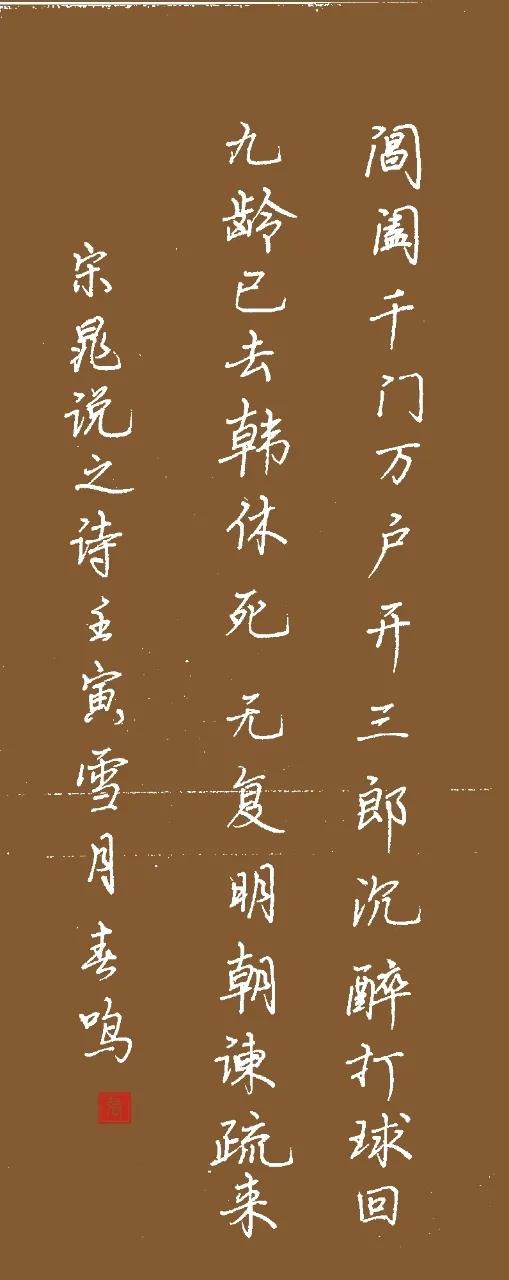 阊阖千门万户开三郎沉醉打球回
九龄已去韩休死无复明朝谏疏来
宋晁说之诗壬寅雪月春鸣